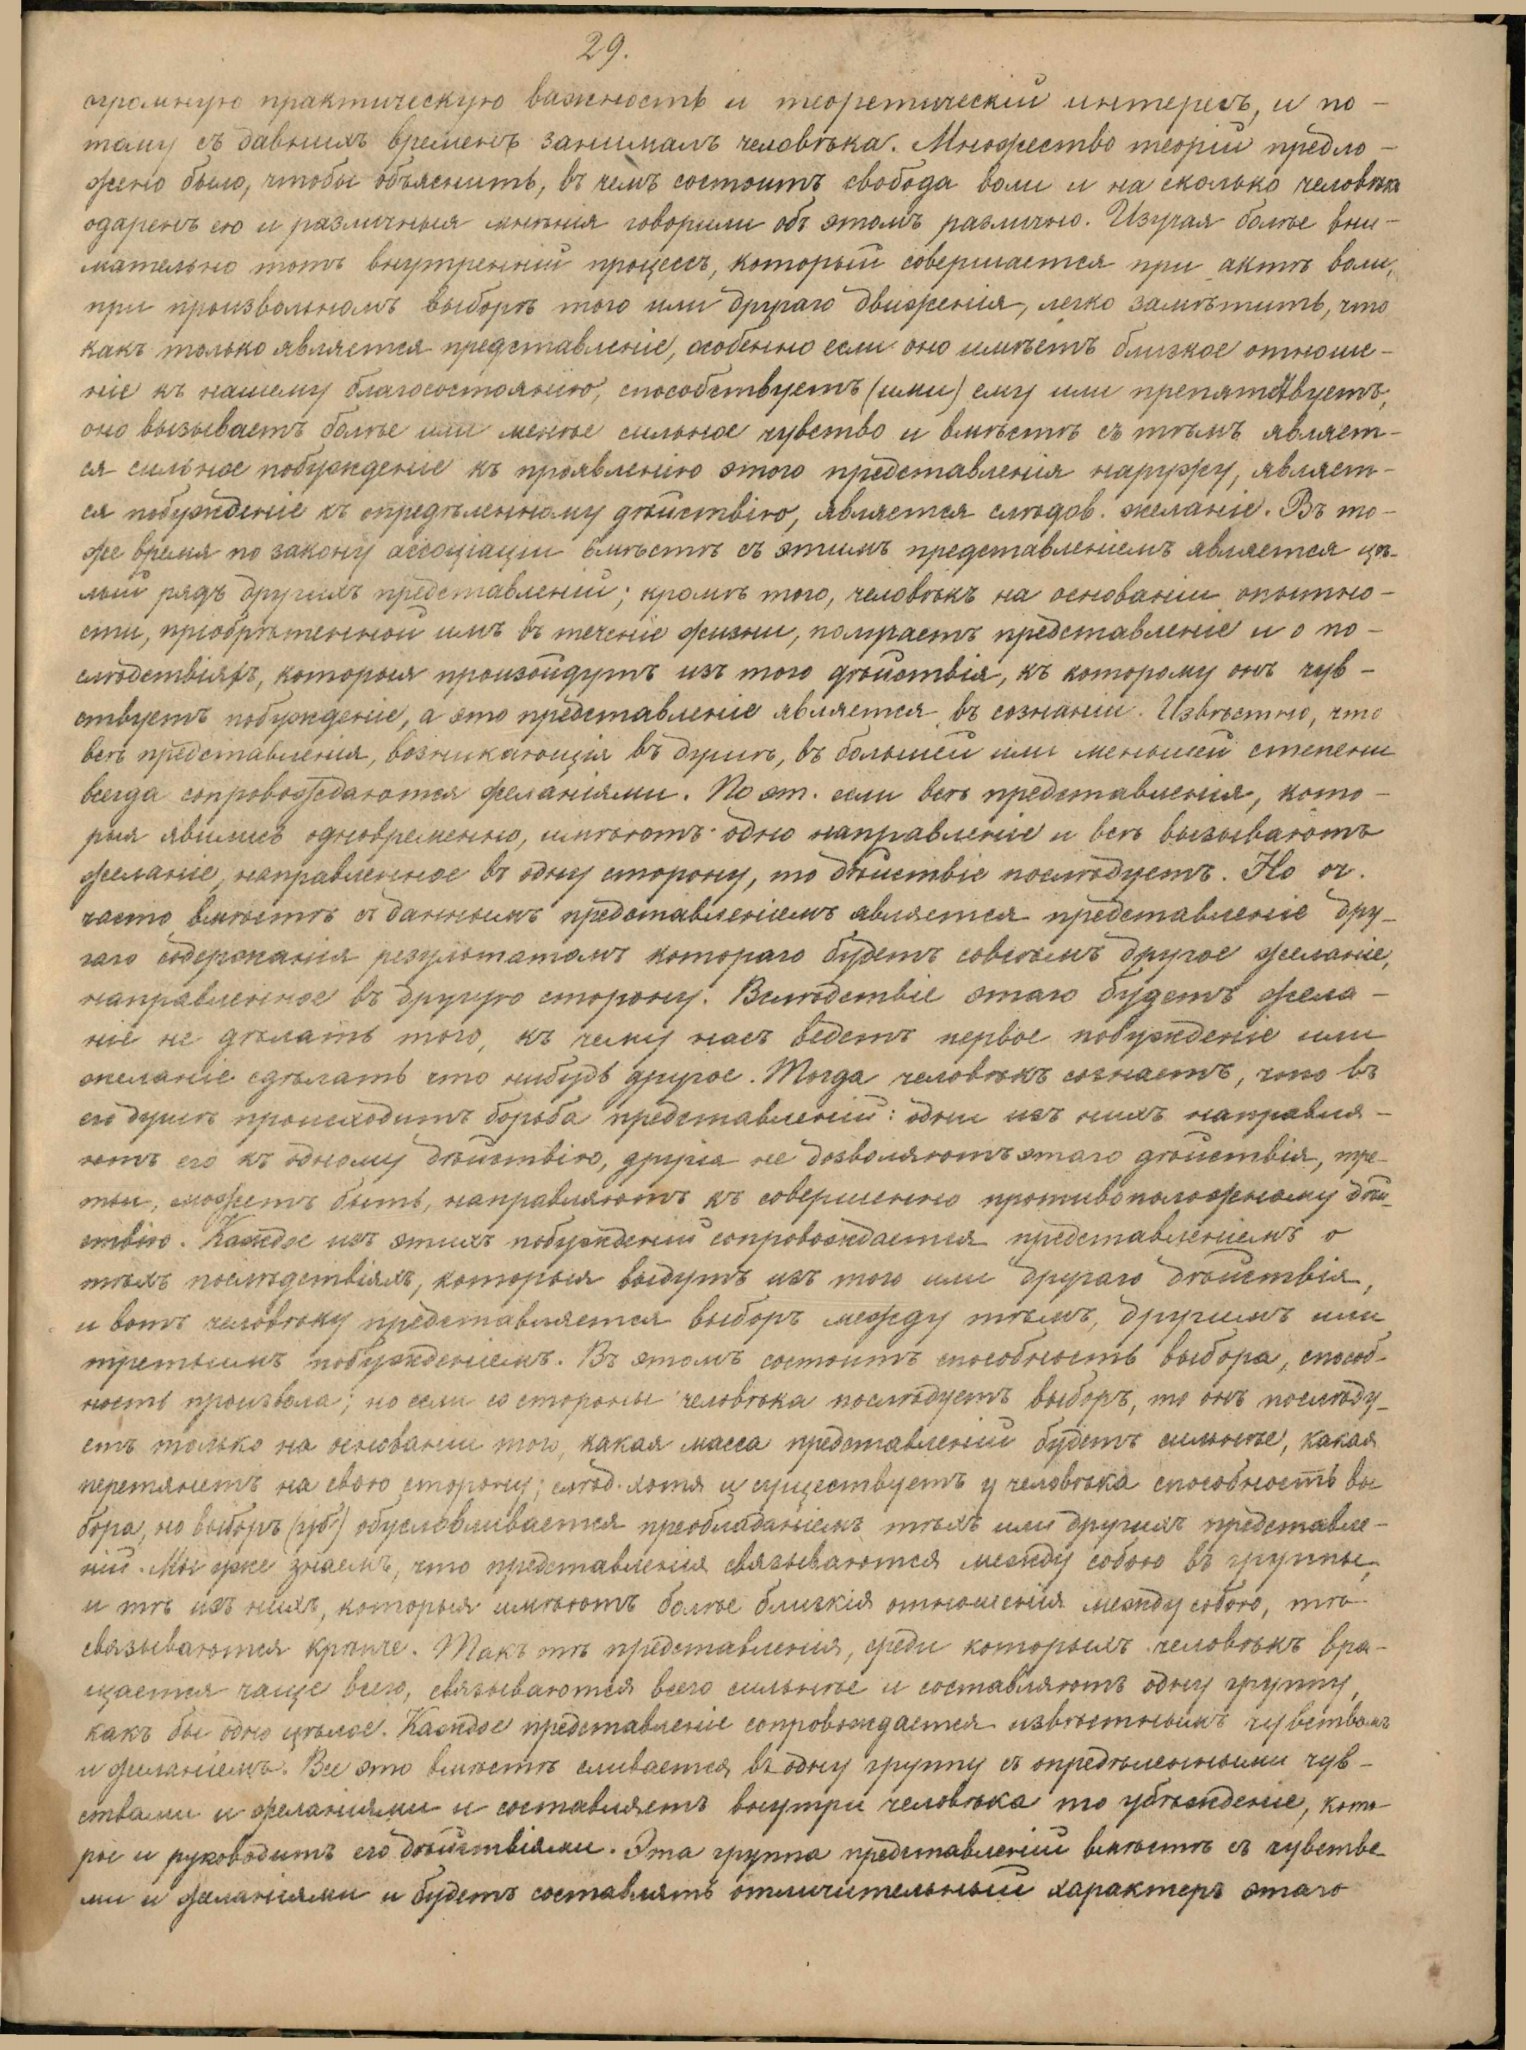 29.
огромную практическую важность и теоретическій интересъ, и по-
тому съ давнихъ временъ занималъ человѣка. Множество теорій предло-
жено было, чтобы объяснить, въ чемъ состоитъ свобода воли и на сколько человѣкъ
одаренъ ею и различныя мнѣнія говорили объ этомъ различно. Изучая болѣе вни-
мательно тотъ внутренній процессъ, который совершается при актѣ воли,
при произвольномъ выборѣ того или другаго движенія, легко замѣтить, что
какъ только является представленіе, особенно если оно имѣетъ близкое отноше-
ніе къ нашему благосостоянію, способствуетъ (или) ему или препятствуетъ,
оно вызываетъ болѣе или менѣе сильное чувство и вмѣстѣ съ тѣмъ являет-
ся сильное побужденіе къ проявленію этого представленія наружу, являет-
ся побужденіе къ опредѣленному дѣйствію, является слѣдов. желаніе. Въ то-
же время по закону ассоціаціи вмѣстѣ съ этимъ представленіемъ является цѣ-
лый рядъ другихъ представленій; кромѣ того, человѣкъ на основаніи опытно-
сти, пріобрѣтенной имъ въ теченіе жизни, получаетъ представленіе и о по-
слѣдствіяхъ, которыя произойдутъ изъ того дѣйствія, къ которому онъ чув-
ствуетъ побужденіе, а это представленіе является въ сознаніи. Извѣстно, что
всѣ представленія, возникающія въ душѣ, въ большей или меньшей степени
всегда сопровождаются желаніями. Поэт. если всѣ представленія, кото-
рыя явились одновременно, имѣютъ одно направленіе и всѣ вызываютъ
желаніе, направленное въ одну сторону, то дѣйствіе послѣдуетъ. Но оч.
часто вмѣстѣ съ даннымъ представленіемъ является представленіе дру-
гаго содержанія результатомъ котораго будетъ совсѣмъ другое желаніе,
направленное въ другую сторону. Вслѣдствіе этаго будетъ жела-
ніе не дѣлать того, къ чему насъ ведетъ первое побужденіе или
желаніе сдѣлать что нибудь другое. Тогда человѣкъ сознаетъ, что въ
его душѣ происходитъ борьба представленій: одни изъ нихъ направля-
ютъ его къ одному дѣйствію, другія не дозволяютъ этаго дѣйствія, тре-
тьи, можетъ быть, направляютъ къ совершенно противоположному дѣй-
ствію. Каждое изъ этихъ побужденій сопровождается представленіемъ о
тѣхъ послѣдствіяхъ, которыя выдутъ изъ того или другаго дѣйствія,
и вотъ человѣку представляется выборъ между тѣмъ, другимъ или
третьимъ побужденіемъ. Въ этомъ состоитъ способность выбора, способ-
ность произвола; но если со стороны человѣка послѣдуетъ выборъ, то онъ послѣду-
етъ только на основаніи того, какая масса представленій будетъ сильнѣе, какая
перетянетъ на свою сторону; слѣд. хотя и существуетъ у человѣка способность вы
бора, но выборъ обусловливается преобладаніемъ тѣхъ или другихъ представле-
ній. Мы же знаемъ, что представленія связываются между собою въ группы,
и тѣ изъ нихъ, которыя имѣютъ болѣе близкія отношенія между собою, тѣ
связываются крѣпче. Такъ тѣ представленія, среди которыхъ человѣкъ вра-
щается чаще всего, связываются всего сильнѣе и составляютъ одну группу,
какъ бы одно цѣлое. Каждое представленіе сопровождается извѣстнымъ чувствомъ
и желаніемъ. Все это вмѣстѣ сливается въ одну группу съ опредѣленными чув-
ствами и желаніями и составляетъ внутри человѣка то убѣжденіе, кото
рое и руководитъ его дѣйствіями. Эта группа представленій вмѣстѣ съ чувства
ми и желаніями и будетъ составлять отличительный характеръ этаго